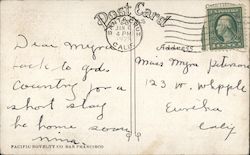 Post Card
CALIF.
4 PM
Dear Myra
Address
back to gods
Miss Myra Peterson
Country for a
123 W. Whipple
short stay
Eureka
be home soon
Caly
PACIFIC NOVELTY CO. SAN FRANCISCO